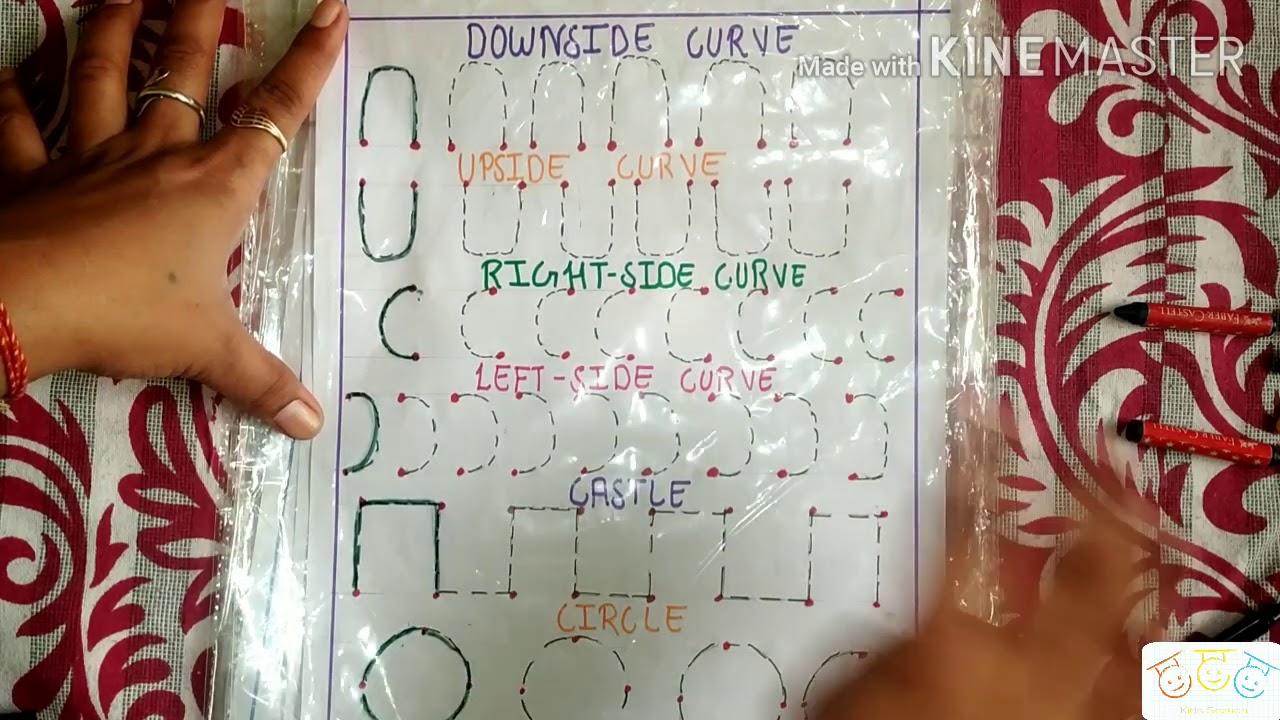 DOWNSIDE CURVE
Made with KINEMASTER
UPSIDE CURVE
RIGHT-SIDE CURVE
FABER CASTELL
LEFT-SIDE CURVE
FABER CASTELL
CASTLE
CIRCLE